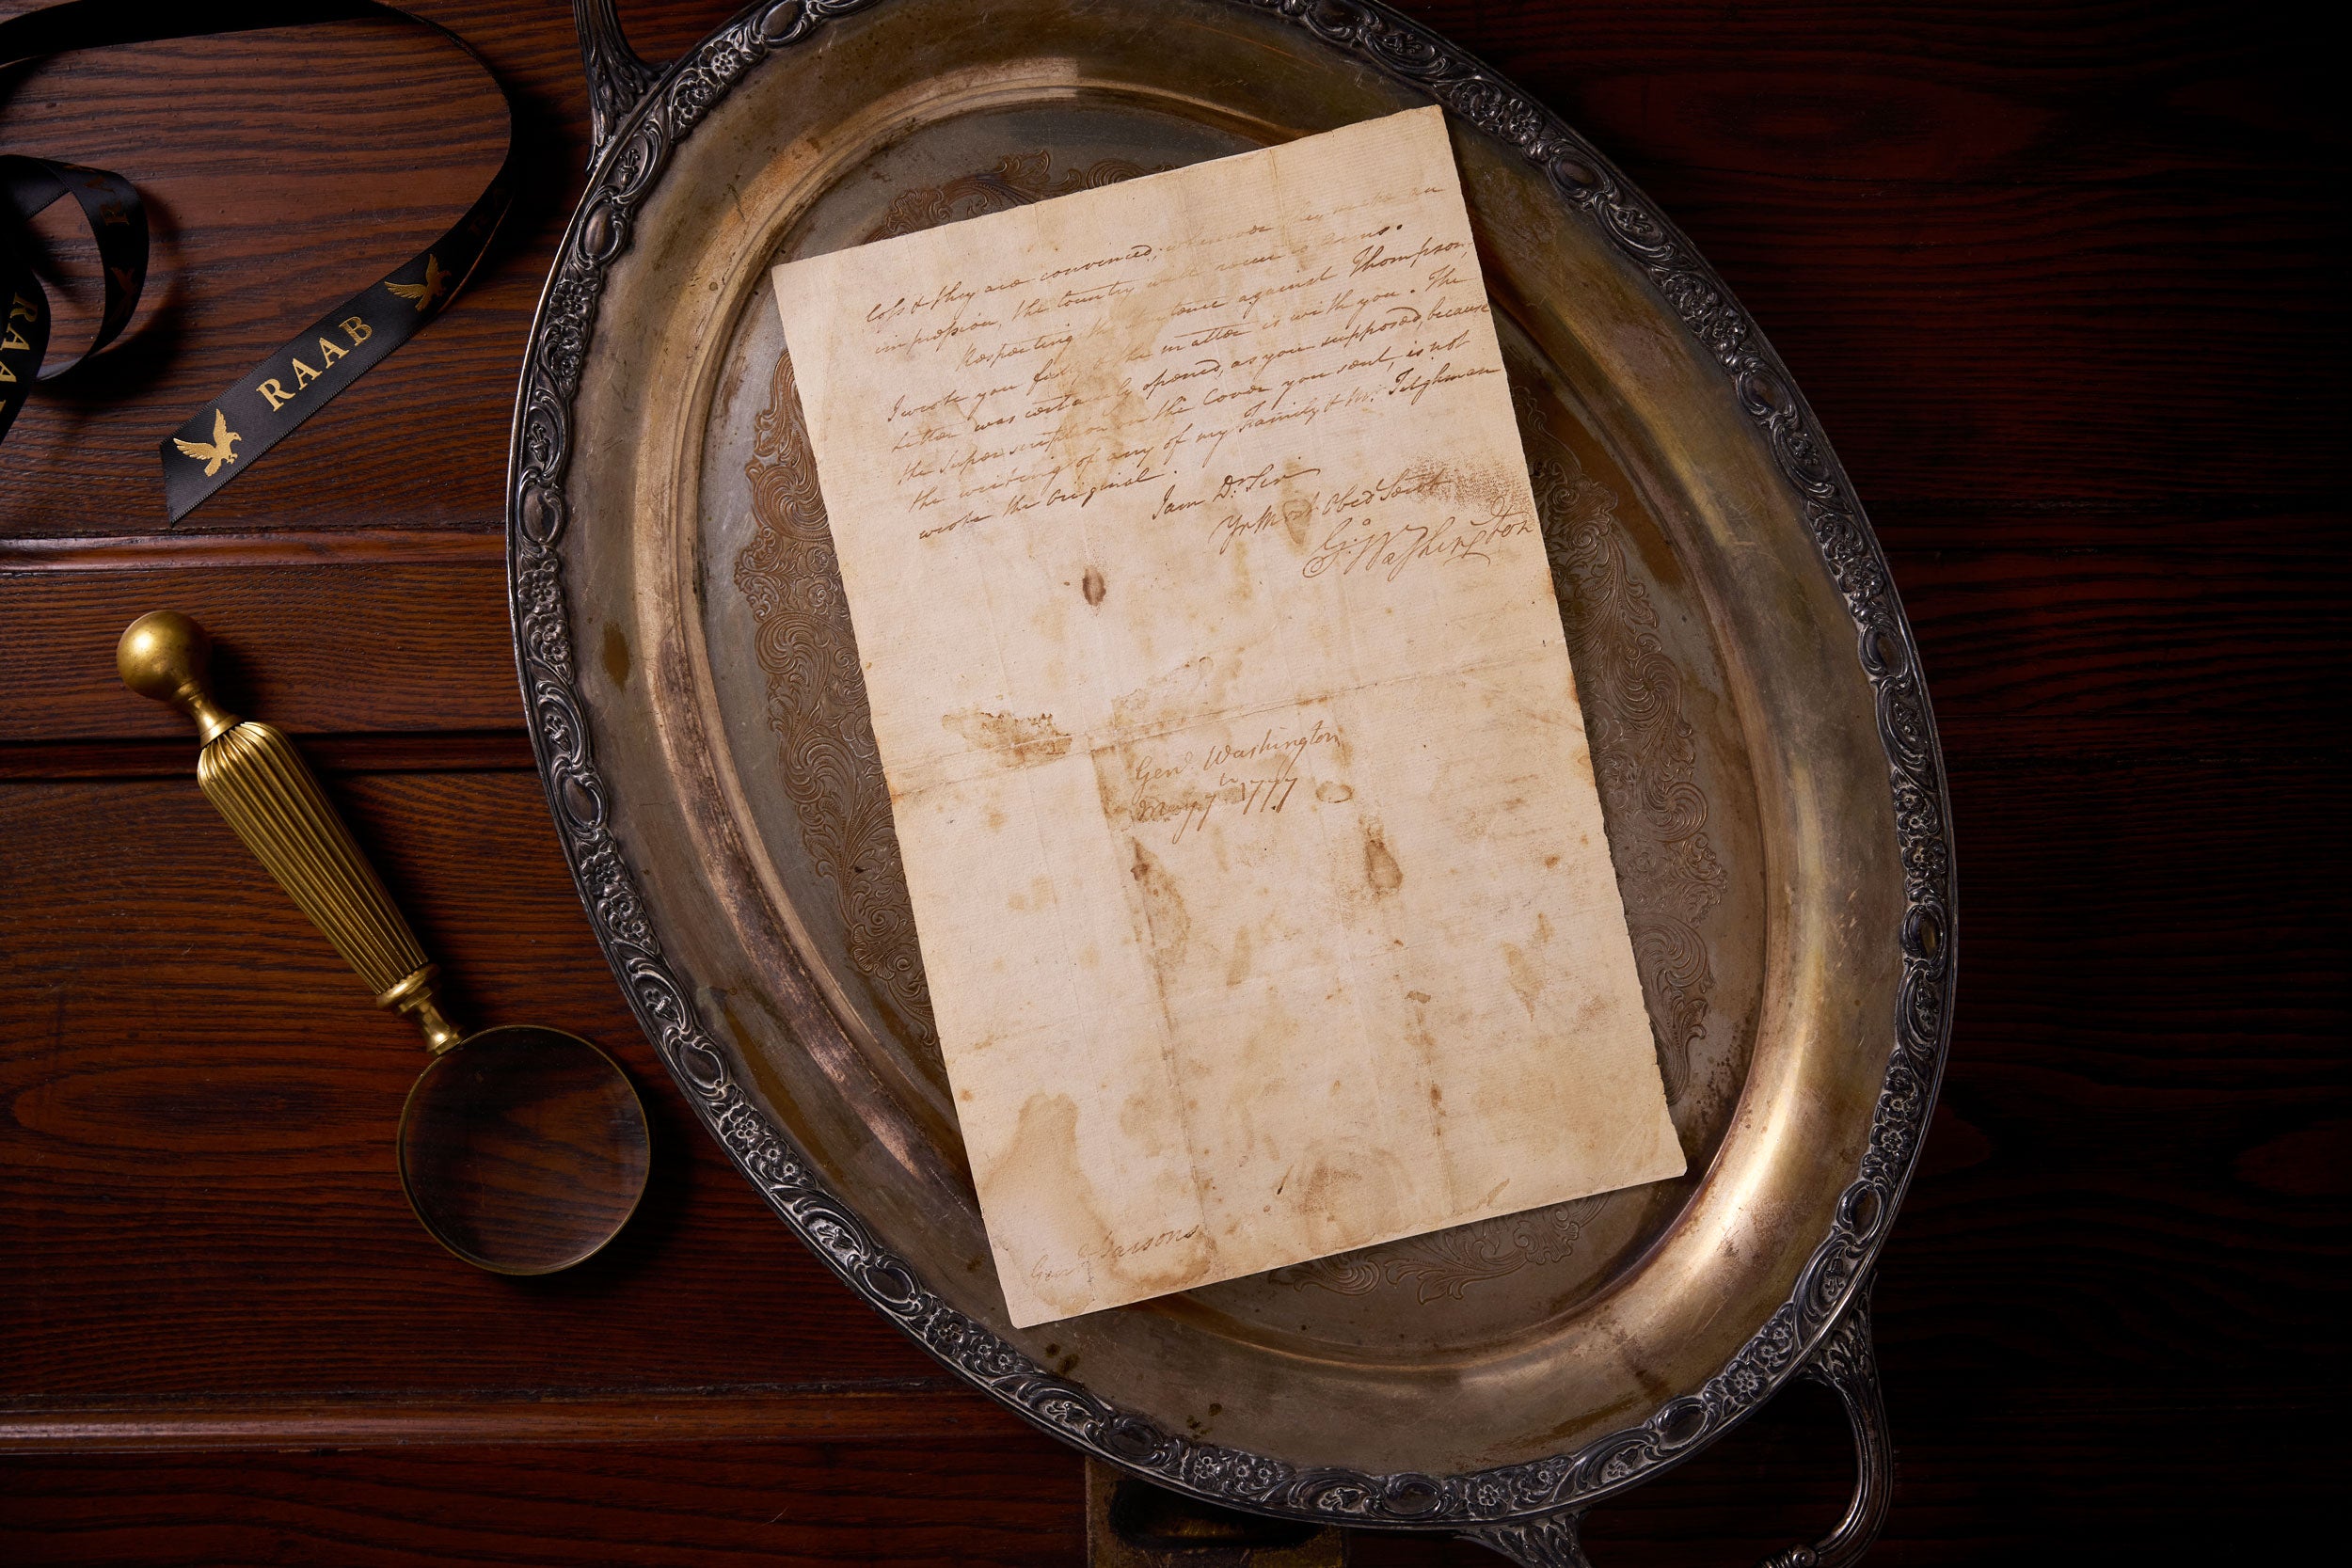 RAAB
loss & they are convinced, whenever they make an
impression, the Country will rise in arms.
Respecting the sentence against Thompson,
I wrote you fully & the matter is with you. The
Letter was certainly opened, as you supposed, because
the Superscription on the Cover you sent, is not
the writing of any of my Family & Mr. Tilghman
wrote the Original.
I am Dr. Sir
Yr Most Obed Servt
Go: Washington
Genl Washington
May 7th 1777
Genl Parsons